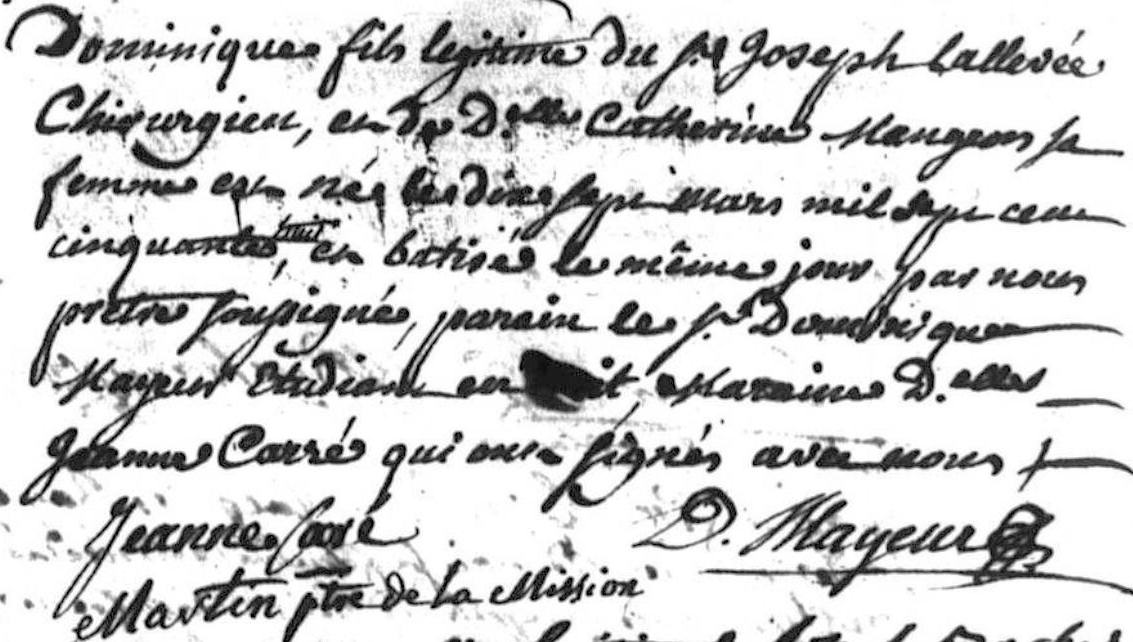 Dominique fils legitime du Sr Joseph Lallevée
Chirurgien, et de D.elle Catherine Mangeon sa
femme est né le dix sept Mars mil sept cent
cinquante huit, et batisé le même jour par nous
prêtre soussigné, parain le Sr Dominique
Mayeur Etudiant en Maraine D.elle
Jeanne Carré qui ont signés avec nous
Jeanne Carré D. Mayeur
Martin ptre de la Mission